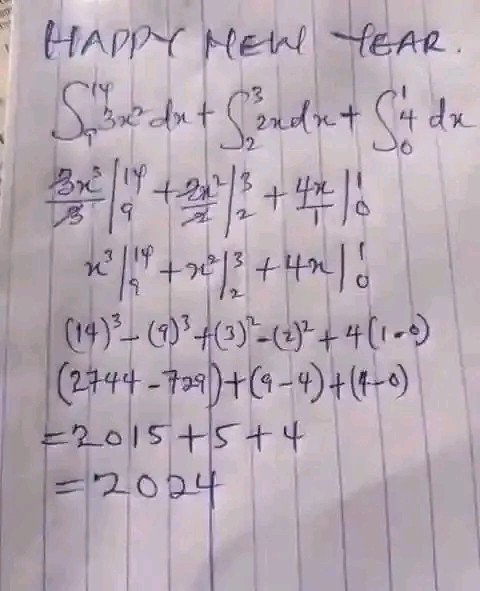 HAPPY NEW YEAR.
∫₉¹⁴ 3x² dx + ∫₂³ 2x dx + ∫₀¹ 4 dx
3x³/3 |₉¹⁴ + 2x²/2 |₂³ + 4x/1 |₀¹
x³ |₉¹⁴ + x² |₂³ + 4x |₀¹
(14)³ - (9)³ + (3)² - (2)² + 4(1-0)
(2744 - 729) + (9 - 4) + (4 - 0)
= 2015 + 5 + 4
= 2024